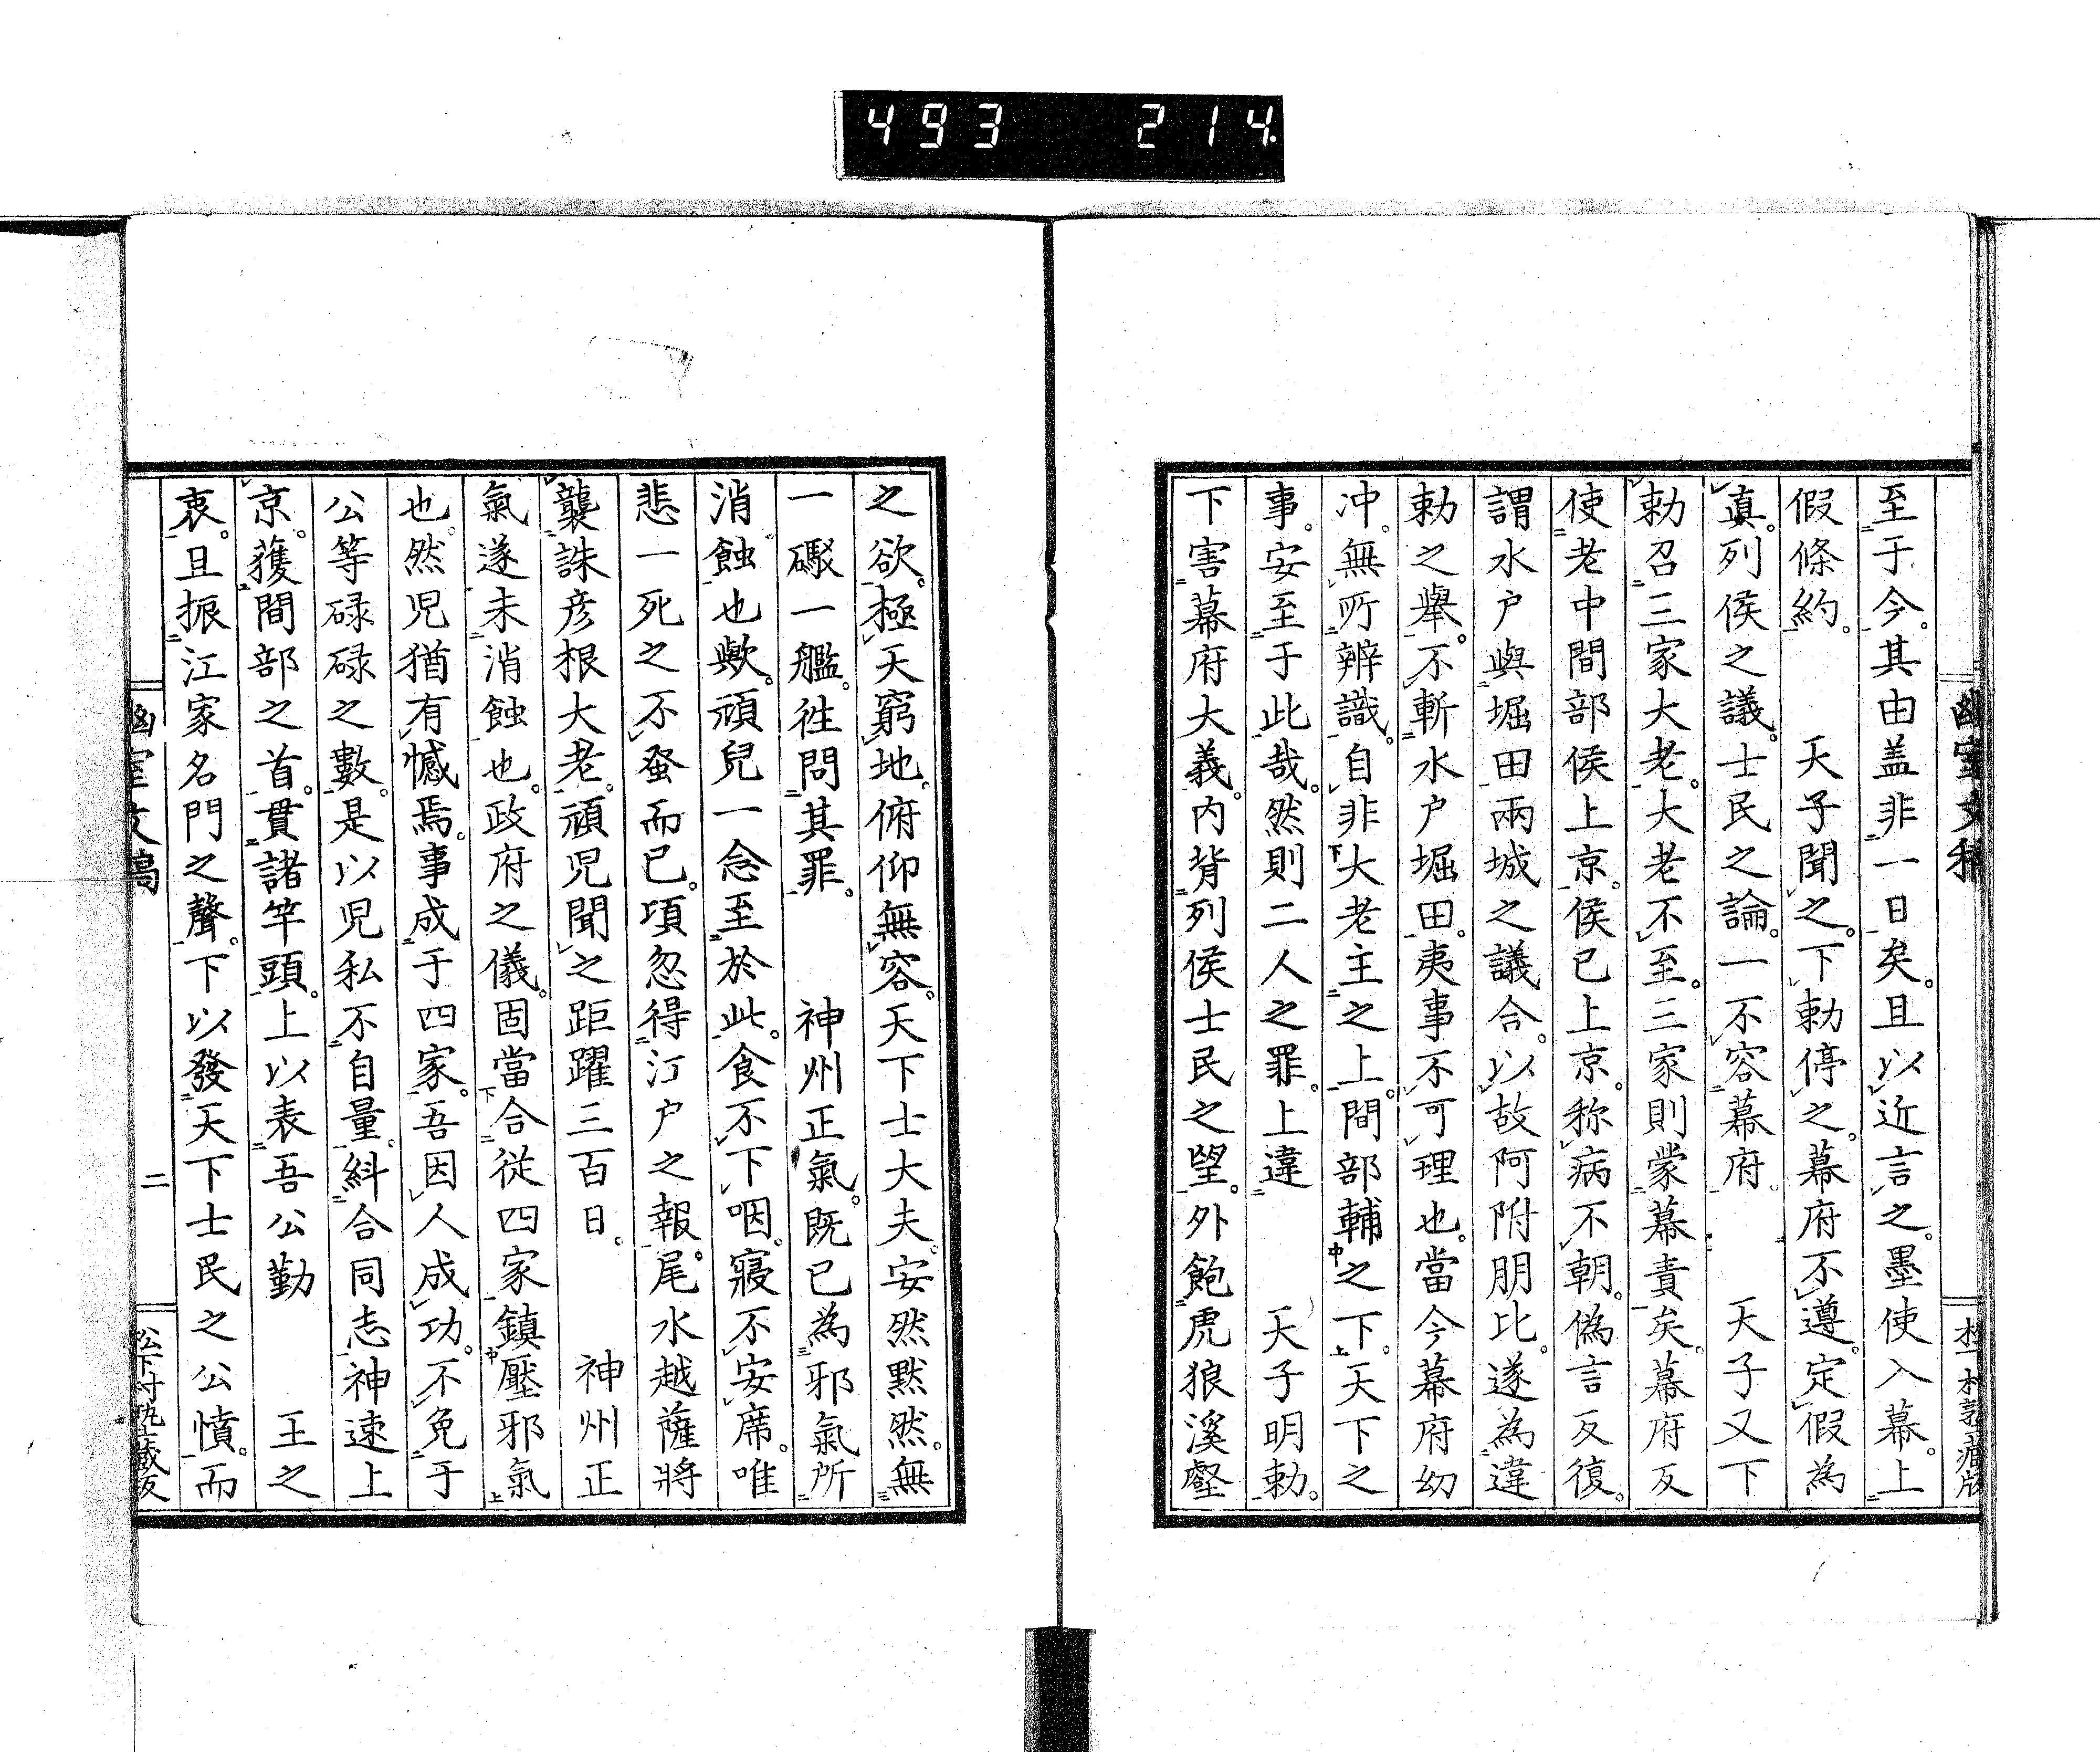 493 214
幽室文稿
至于今。其由盖非一日矣。且以近言之。墨使入幕。上
假條約。　天子聞之。下勅停之。幕府不遵。定假為
眞。列侯之議。士民之論。一不容幕府。　天子又下
勅召三家大老。大老不至。三家則蒙幕責矣。幕府反
使老中間部侯上京。侯已上京。称病不朝。偽言反復。
謂水户與堀田兩城之議合。以故阿附朋比。遂為違
勅之舉。不斬水户堀田。夷事不可理也。當今幕府幼
冲。無所辨識。自非大老主之上。間部輔之下。天下之
事。安至于此哉。然則二人之罪。上違　天子明勅。
下害幕府大義。内背列侯士民之望。外飽虎狼溪壑
之欲。極天窮地。俯仰無容。天下士大夫。安然默然。無
一礟一艦。徃問其罪。　神州正氣。既已為邪氣所
消蝕也歟。頑兒一念至於此。食不下咽。寢不安席。唯
悲一死之不蚤而已。頃忽得江户之報。尾水越薩將
襲誅彦根大老。頑児聞之距躍三百日。　神州正
氣遂未消蝕也。政府之儀。固當合従四家鎮壓邪氣
也。然児猶有憾焉。事成于四家。吾因人成功。不免于
公等碌碌之數。是以児私不自量。糾合同志神速上
京。獲間部之首。貫諸竿頭。上以表吾公勤　王之
衷。且振江家名門之聲。下以發天下士民之公憤。而
幽室文稿
二
松下村塾蔵版